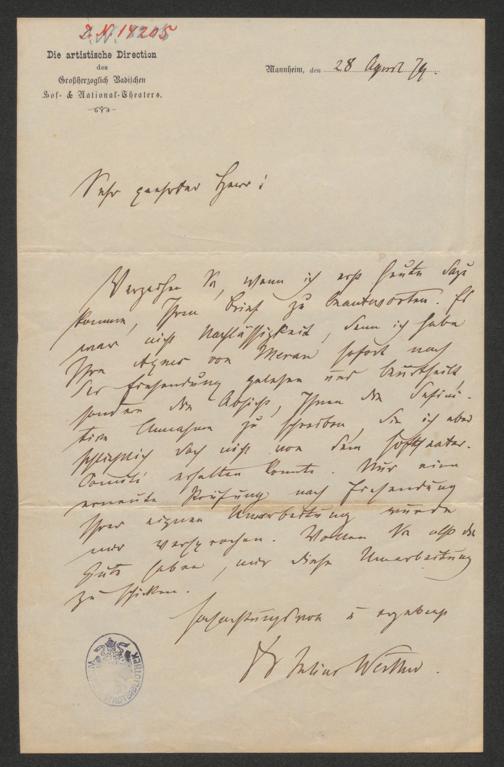 2.N.14205
Die artistische Direction
des
Großherzoglich Badischen
Hof- & National-Theaters.
Mannheim, den 28 April 79.
Sehr geehrter Herr!
Verzeihen Sie, wenn ich erst heute dazu
komme, Ihren Brief zu beantworten. Es
war nicht Nachlässigkeit, denn ich habe
Ihre Agnes von Meran sofort nach
der Einsendung gelesen und beurtheilt,
sondern die Absicht, Ihnen die defini-
tive Annahme zu schreiben, die ich aber
schließlich doch nicht von dem Hoftheater-
Comité erhalten konnte. Nur eine
erneute Prüfung nach Einsendung
Ihrer eignen Umarbeitung wurde
mir versprochen. Wollen Sie also die
Güte haben, mir diese Umarbeitung
zu schicken.
Hochachtungsvoll u ergebenst
Dr Julius Werther.